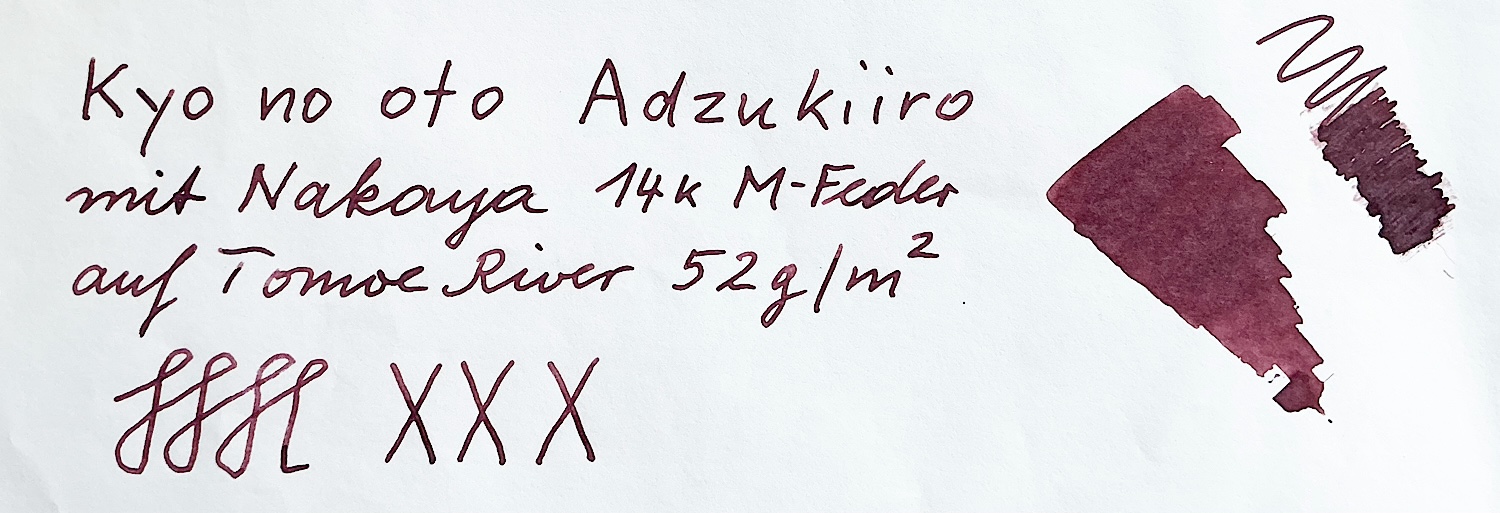 Kyo no oto Adzukiiro
mit Nakaya 14k M-Feder
auf Tomoe River 52g/m²
XXX